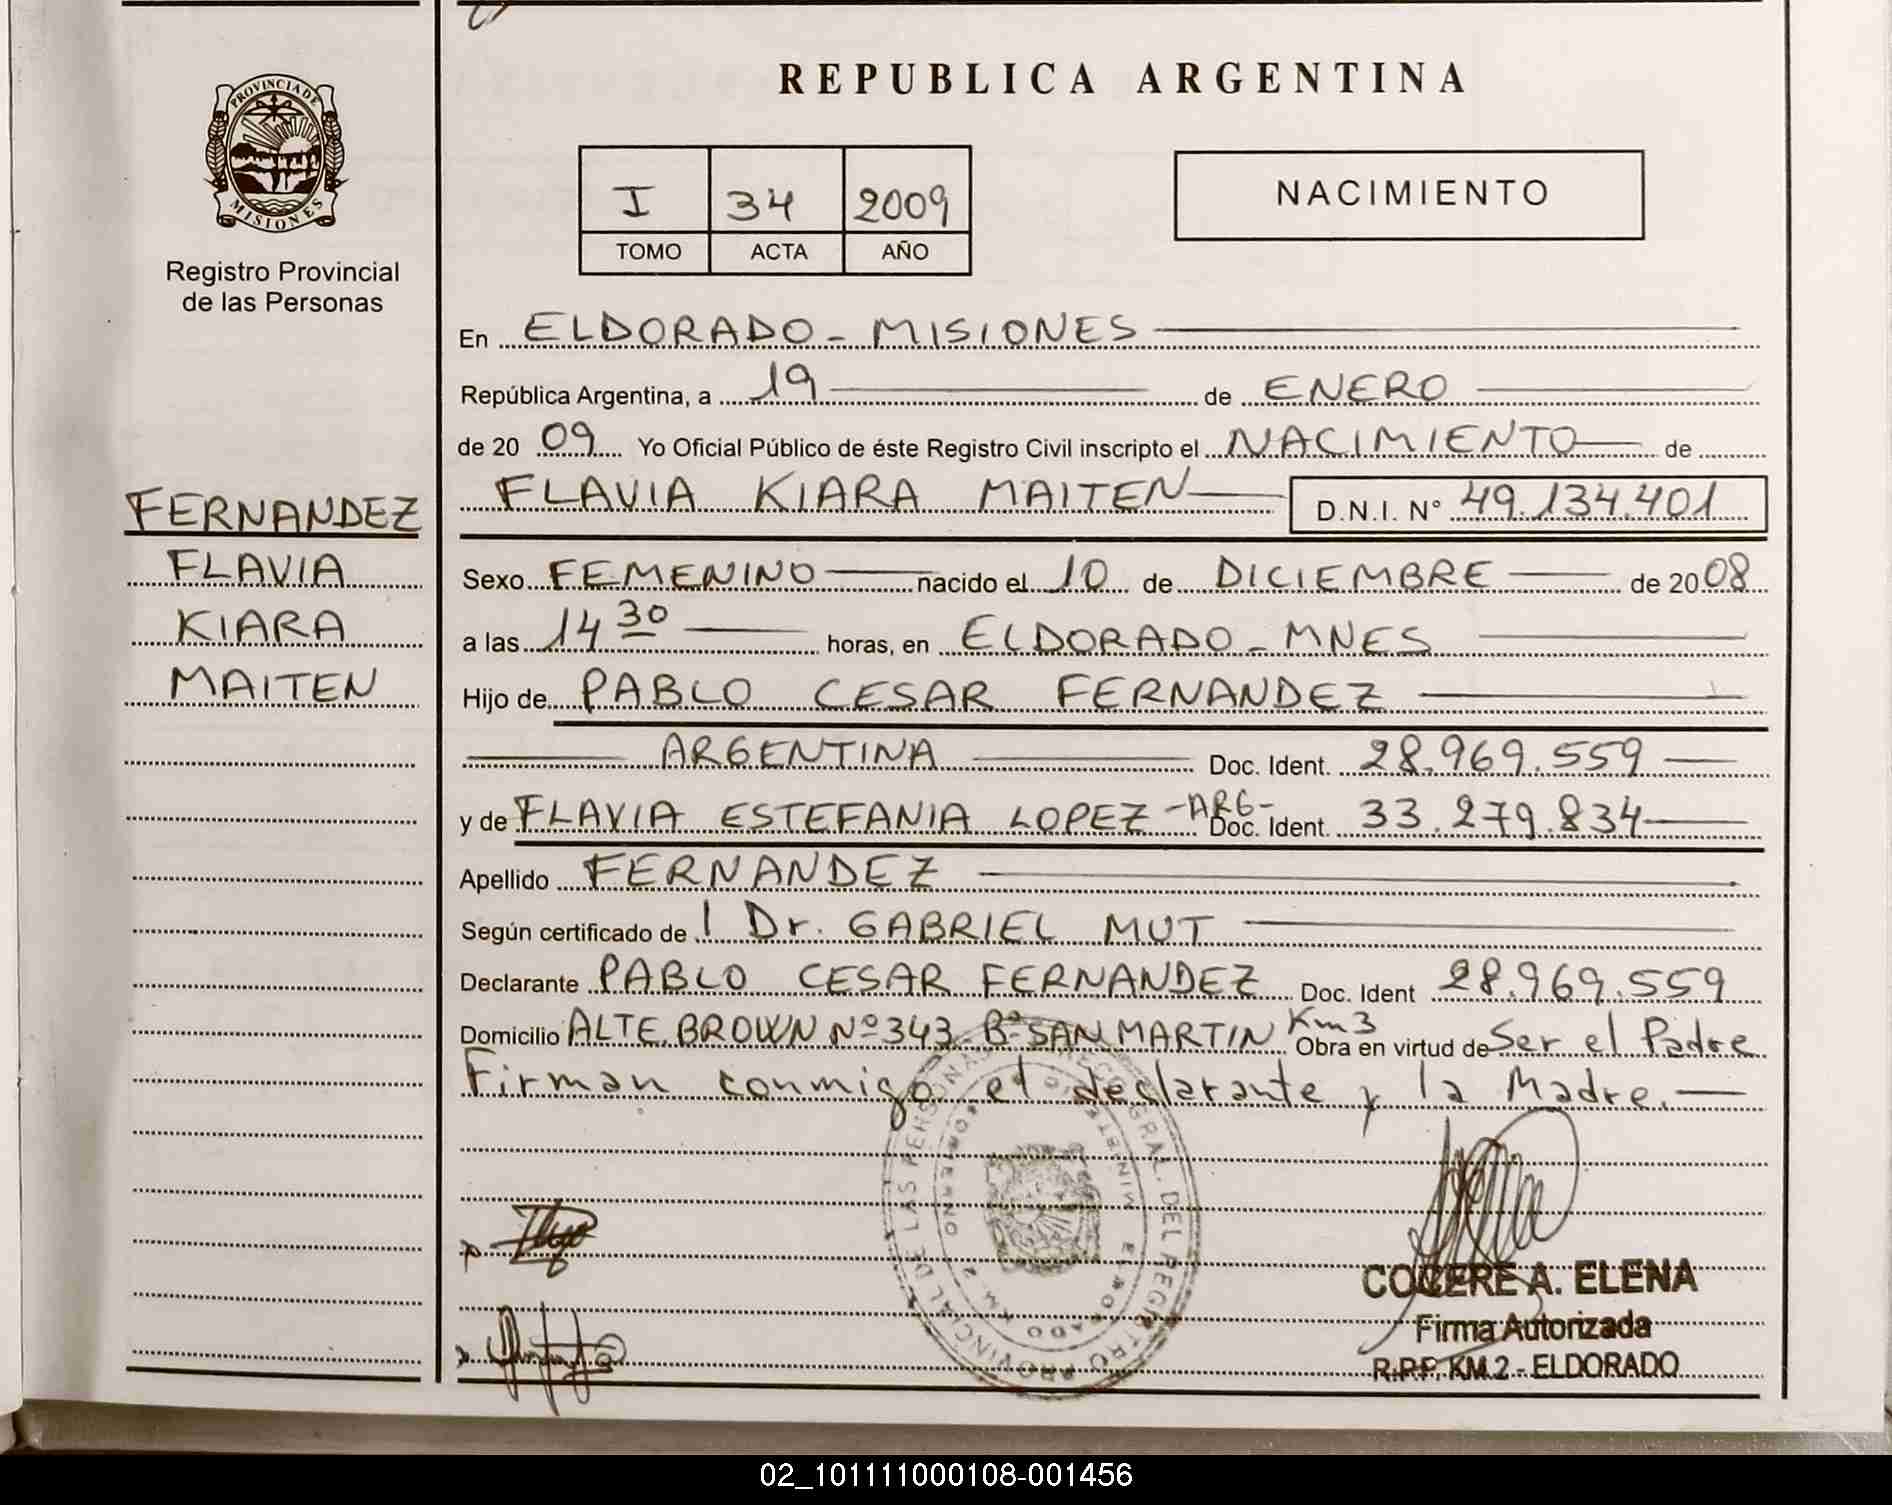 REPUBLICA ARGENTINA
PROVINCIA DE
MISIONES
Registro Provincial
de las Personas
I 34 2009
TOMO ACTA AÑO
NACIMIENTO
En ELDORADO - MISIONES
República Argentina, a 19 de ENERO
de 2009 Yo Oficial Público de éste Registro Civil inscripto el NACIMIENTO de
FLAVIA KIARA MAITEN D.N.I. N° 49.134.401
FERNANDEZ
FLAVIA
KIARA
MAITEN
Sexo FEMENINO nacido el 10 de DICIEMBRE de 2008
a las 14 30 horas, en ELDORADO - MNES
Hijo de PABLO CESAR FERNANDEZ
ARGENTINA Doc. Ident. 28.969.559
y de FLAVIA ESTEFANIA LOPEZ -ARG- Doc. Ident. 33.279.834
Apellido FERNANDEZ
Según certificado de l Dr. GABRIEL MUT
Declarante PABLO CESAR FERNANDEZ Doc. Ident 28.969.559
Domicilio ALTE. BROWN Nº 343 - Bº SAN MARTIN Km3 Obra en virtud de Ser el Padre
Firman conmigo el declarante y la Madre.
COCERE A. ELENA
Firma Autorizada
R.P.P. KM. 2 - ELDORADO
02_101111000108-001456